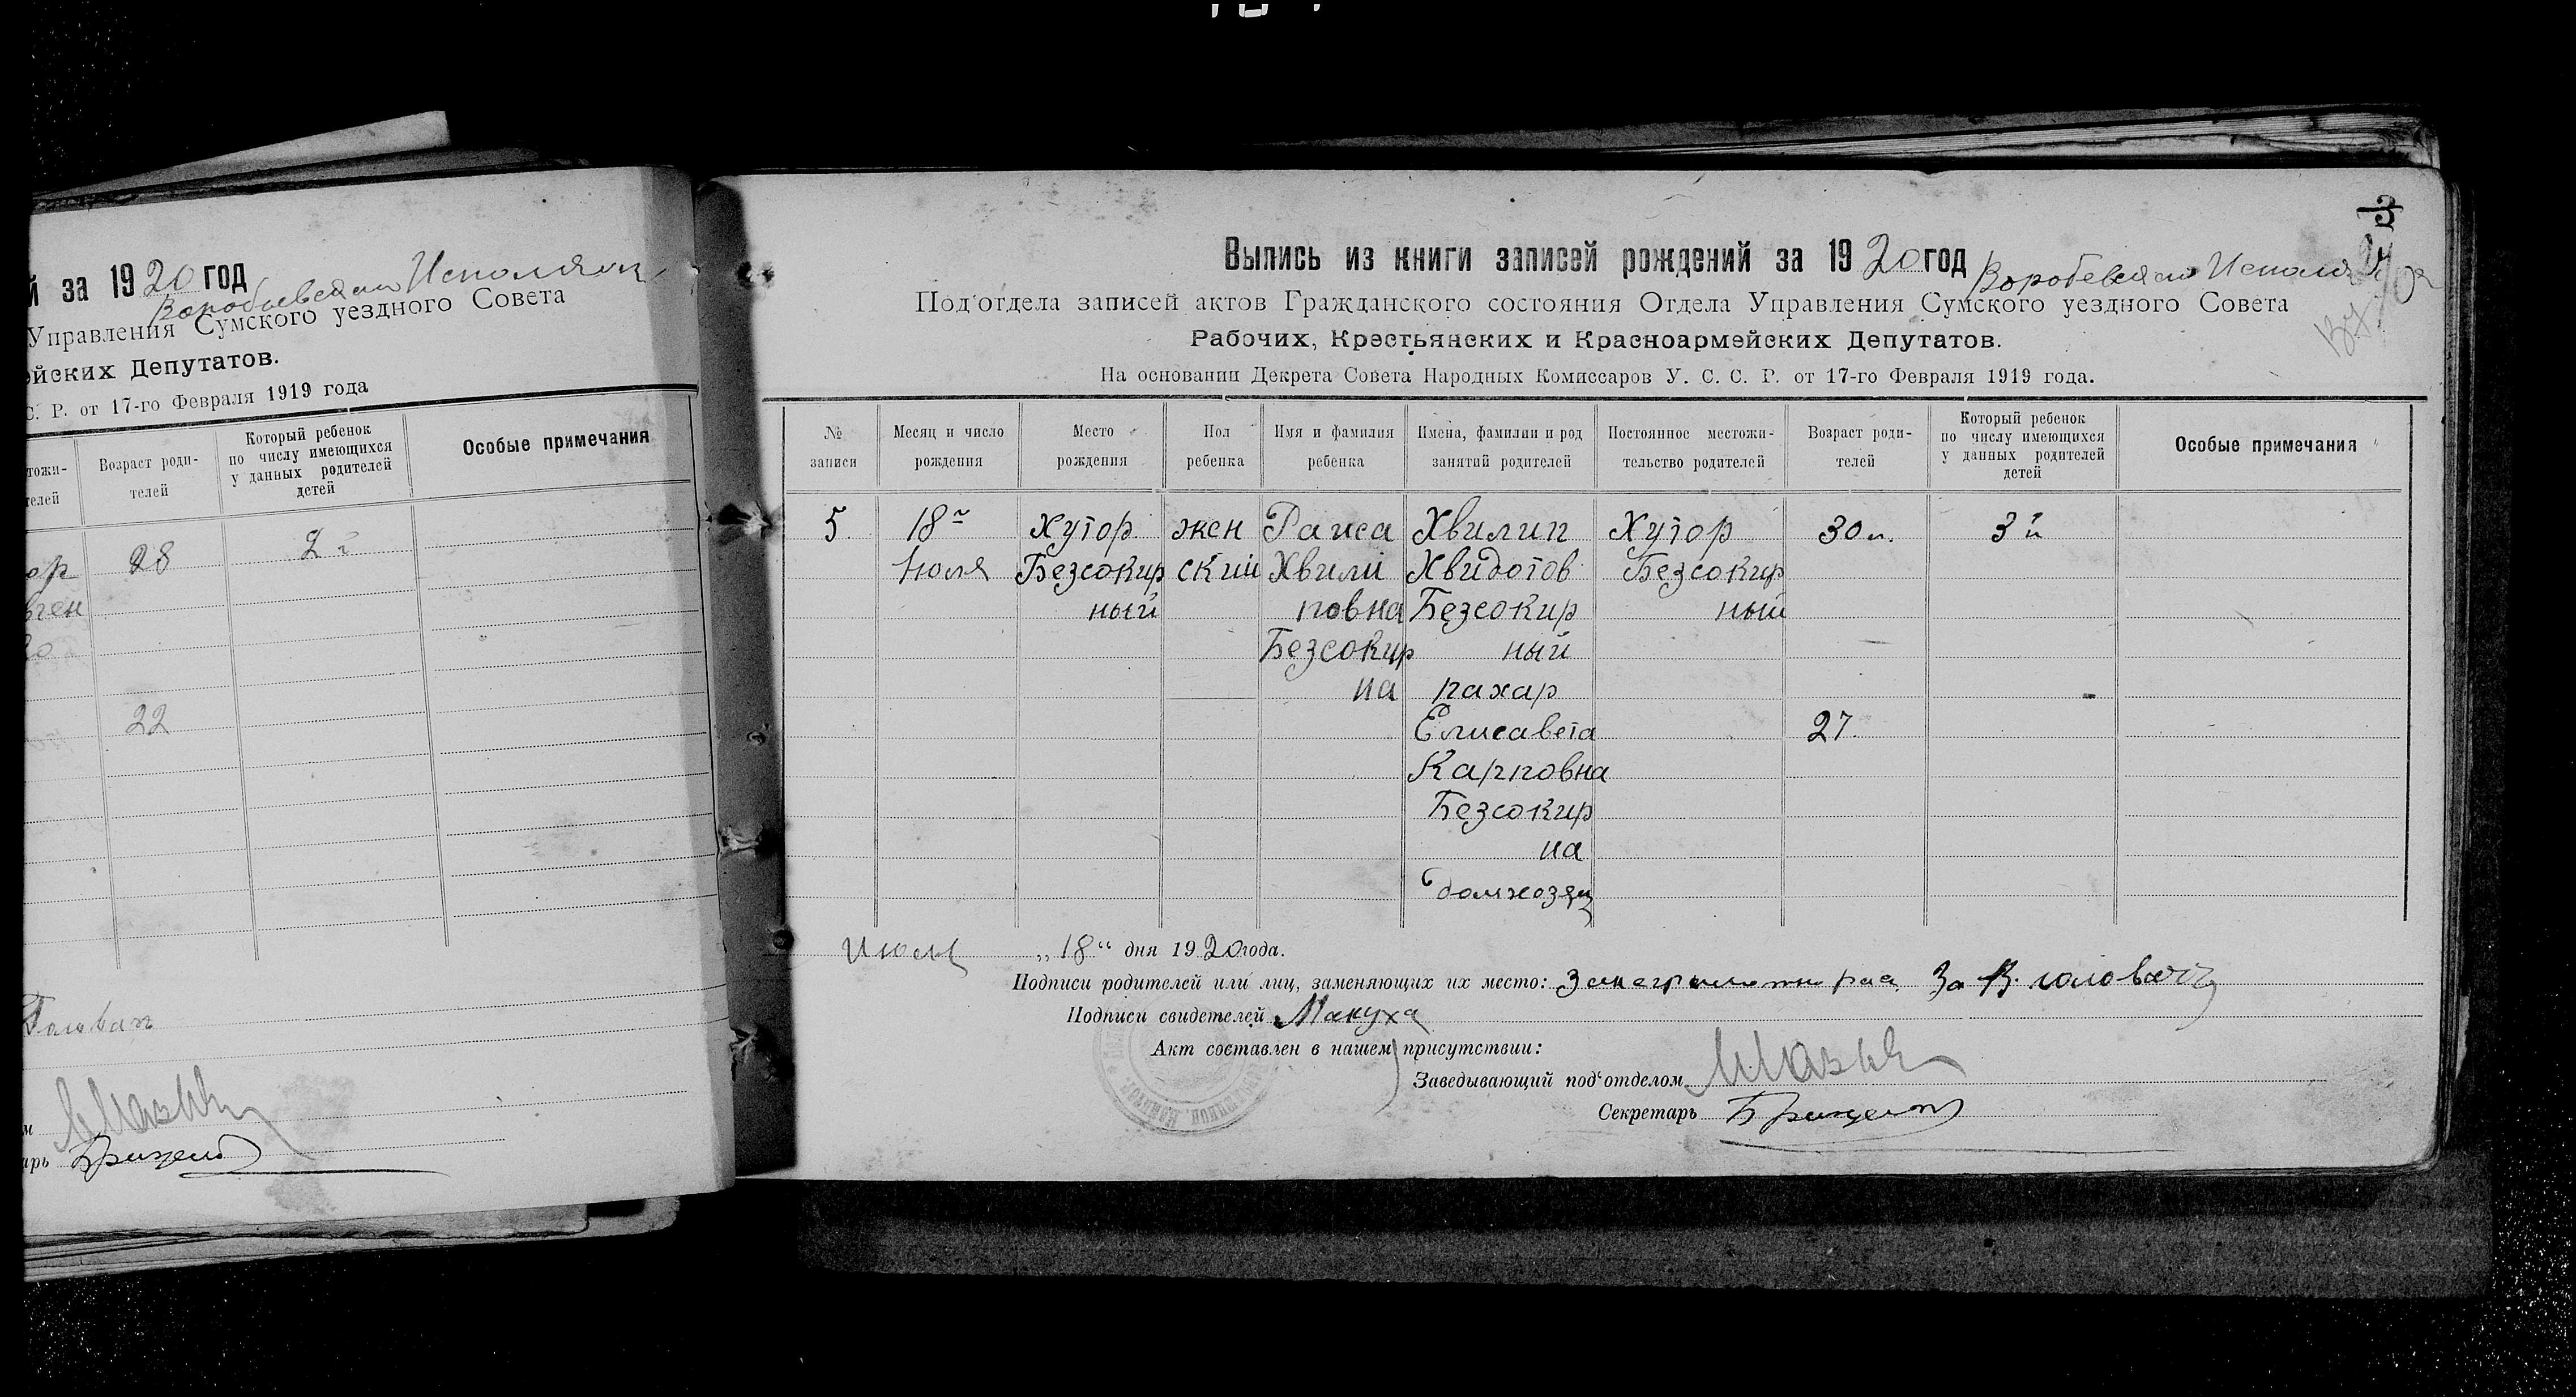 й за 1920 год
Управления Сумского уездного Совета
ейских Депутатов.
С. Р. от 17-го Февраля 1919 года
тожи-
телей
Возраст роди-
телей
Который ребенок
по числу имеющихся
у данных родителей
детей
Особые примечания
ор
28
2й
22
арь
3
Выпись из книги записей рождений за 1920 год
Под'отдела записей актов Гражданского состояния Отдела Управления Сумского уездного Совета
Рабочих, Крестьянских и Красноармейских Депутатов.
На основании Декрета Совета Народных Комиссаров У. С. С. Р. от 17-го Февраля 1919 года.
№
записи
Месяц и число
рождения
Место
рождения
Пол
ребенка
Имя и фамилия
ребенка
Имена, фамилии и род
занятий родителей
Постоянное местожи-
тельство родителей
Возраст роди-
телей
Который ребенок
по числу имеющихся
у данных родителей
детей
Особые примечания
5.
18го
Июля
Хутор
Безсокир
ный
жен
ский
Раиса
Хвили
повна
Безсокир
на
Хвилип
Хвидотов
Безсокир
ный
пахар
Елисавета
Карповна
Безсокир
на
домхозяц
Хутор
Безсокир
ный
30 л.
27.
3й
Июля „18“ дня 1920 года.
Подписи родителей или лиц, заменяющих их место: За
Подписи свидетелей Макуха
Акт составлен в нашем присутствии:
Заведывающий под'отделом
Секретарь